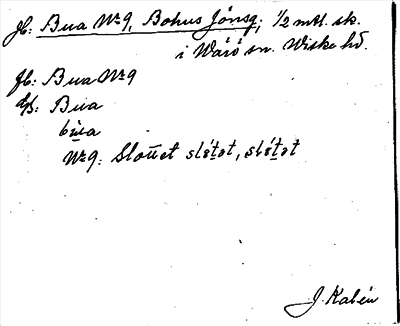 Jb: Bua Nr 9, Bohus Jönsg, 1/2 mtl. sk.
i Wärö sn. Wiske hd.
Jb: Bua Nr 9
Us: Bua
bu̱a
Nr 9: Slottet slɛ́t̠ət, slɛ́t̠ət
J. Kalén